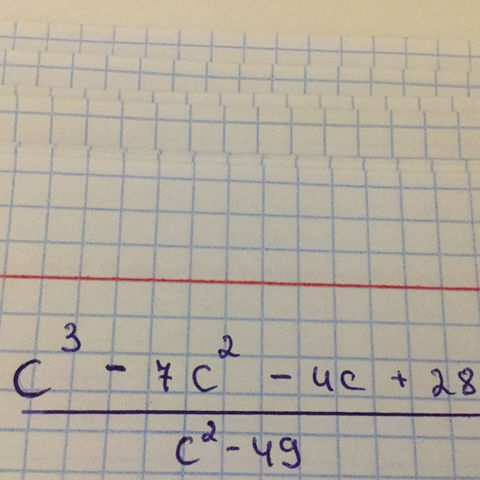 c³ - 7c² - 4c + 28
c² - 49